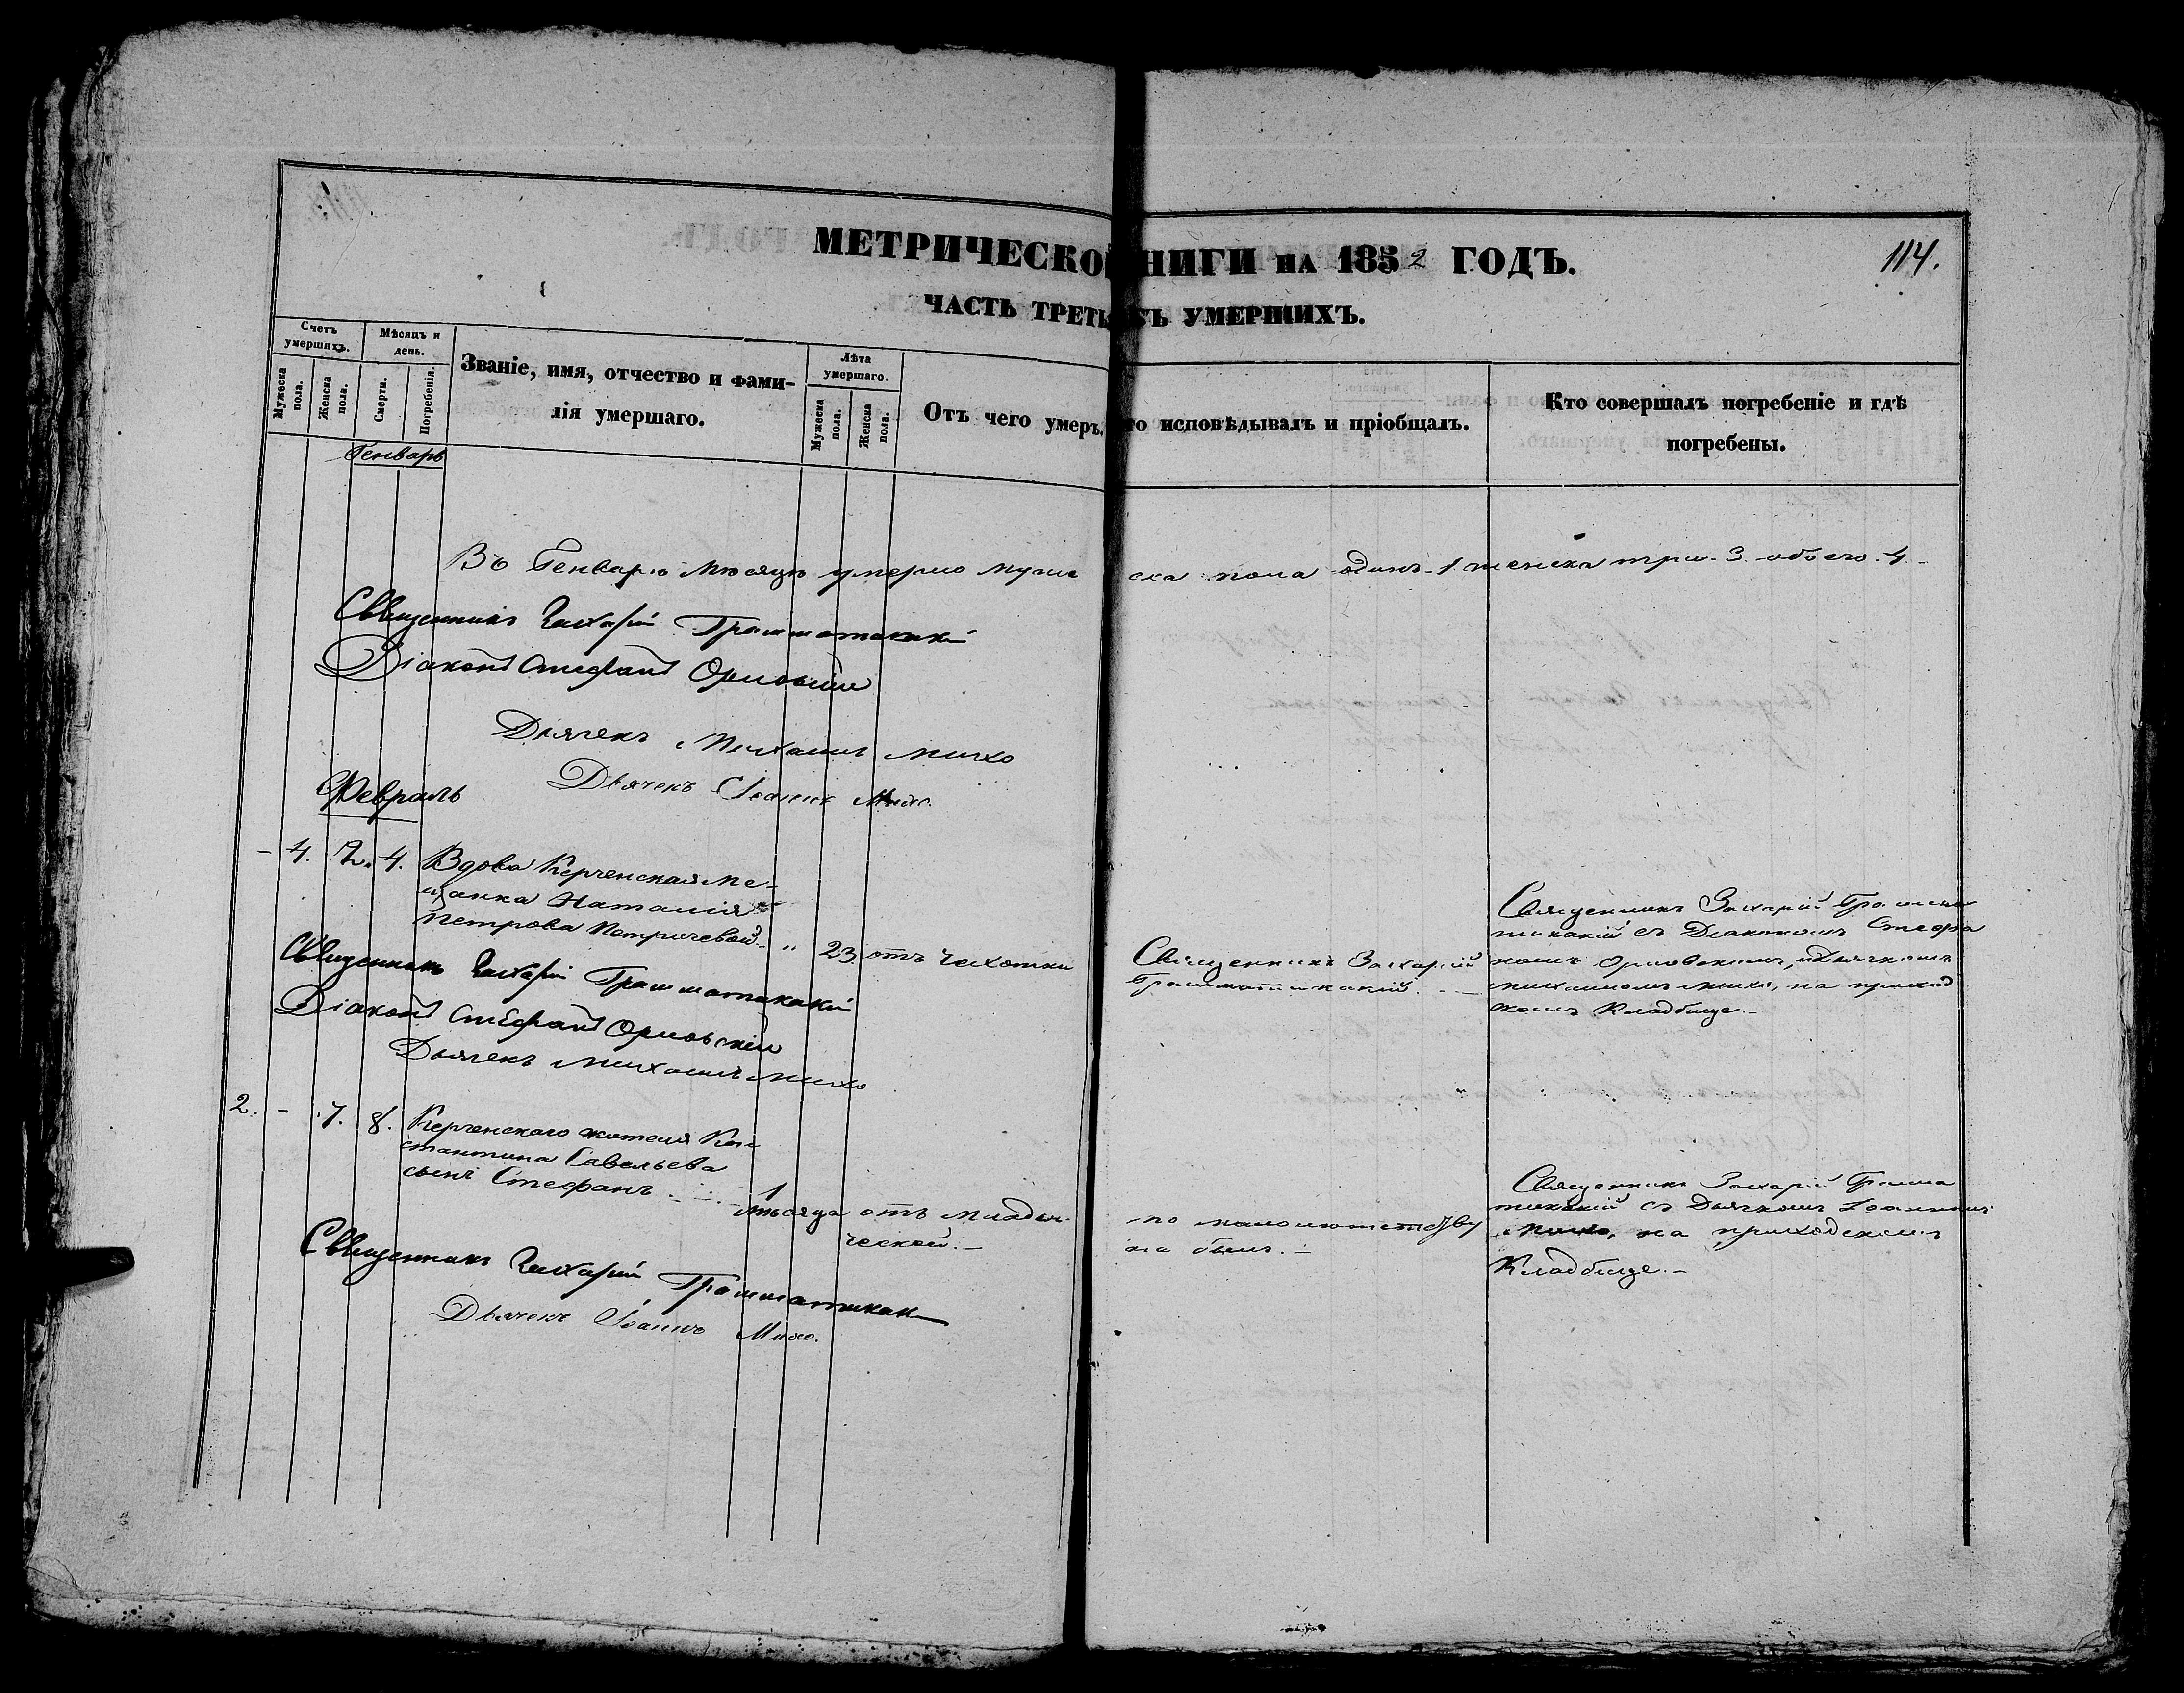 МЕТРИЧЕСКОЙ КНИГИ НА 1852 ГОДЪ.
114.
ЧАСТЬ ТРЕТЬ УМЕРШИХЪ.
Счетъ умершихъ.
Мужеска пола.
Женска пола.
Мѣсяцъ и день.
Смерти.
Погребенія.
Званіе, имя, отчество и фами-
лія умершаго.
Лѣта умершаго.
Мужеска пола.
Женска пола.
Отъ чего умеръ.
то исповѣдывалъ и пріобщалъ.
Кто совершалъ погребеніе и гдѣ
погребены.
Генварь
Въ Генварѣ Мѣсяцѣ умерло муже ска пола одинъ 1. женска три 3. обоего 4.
Священникъ Захарій Грамматикакій
Діаконъ Стефанъ Орловскій
Дьячекъ Михаилъ Михо
Дьячекъ Іоаннъ Михо.
Февраль
- 4. 2. 4. Вдова Керченская Ме-
щанка Наталія
Петрова Петричевой " 23. отъ чехотки
Священникъ Захарій
Грамматикакій.
Священникъ Захарій Грамма
тикакій съ Діакономъ Стефа
номъ Орловскимъ, и Дьячкомъ
Михаиломъ Михо, на приход
комъ Кладбище.-
Священникъ Захарій Грамматикакій
Діаконъ Стефанъ Орловскій
Дьячекъ Михаилъ Михо
2. - 7. 8. Керченскаго жителя Кон
стантина Савельева
сынъ Стефанъ 1
мѣсяца отъ младен-
ческой.-
по малолютству
на былъ.-
Священникъ Захарій Грамма
тикакій съ Дьячкомъ Іоанномъ
Михо, на приходскомъ
Кладбище.-
Священникъ Захарій Грамматикак
Дьячекъ Іоаннъ Михо.